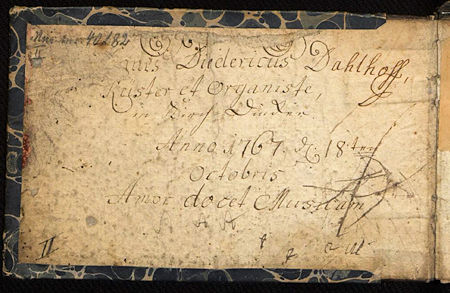 40182
II
Diedericus Dahlhoff,
Küster et Organiste,
in Dincker
Anno 1767. d. 18ten
Octobris
Amor docet Musicam
II